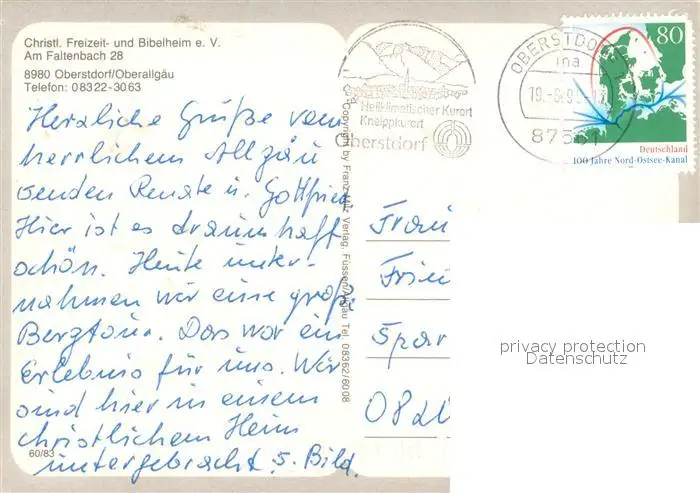 Christl. Freizeit- und Bibelheim e. V.
Am Faltenbach 28
8980 Oberstdorf/Oberallgäu
Telefon: 08322-3063
Herzliche Grüße vom
herrlichem Allgäu
senden Renate u. Gottfried
Hier ist es traumhaft
schön. Heute unter-
nahmen wir eine große
Bergtour. Das war ein
Erlebnis für uns. Wir
sind hier in einem
christlichem Heim
untergebracht s. Bild.
60/83
Copyright by Franz Milz Verlag, Füssen/Allgäu Tel. 08362/6008
Heilklimatischer Kurort
Kneippkurort
Oberstdorf
OBERSTDORF
87561
80
Deutschland
100 Jahre Nord-Ostsee-Kanal
Frau
Frie
Spar
082
privacy protection
Datenschutz